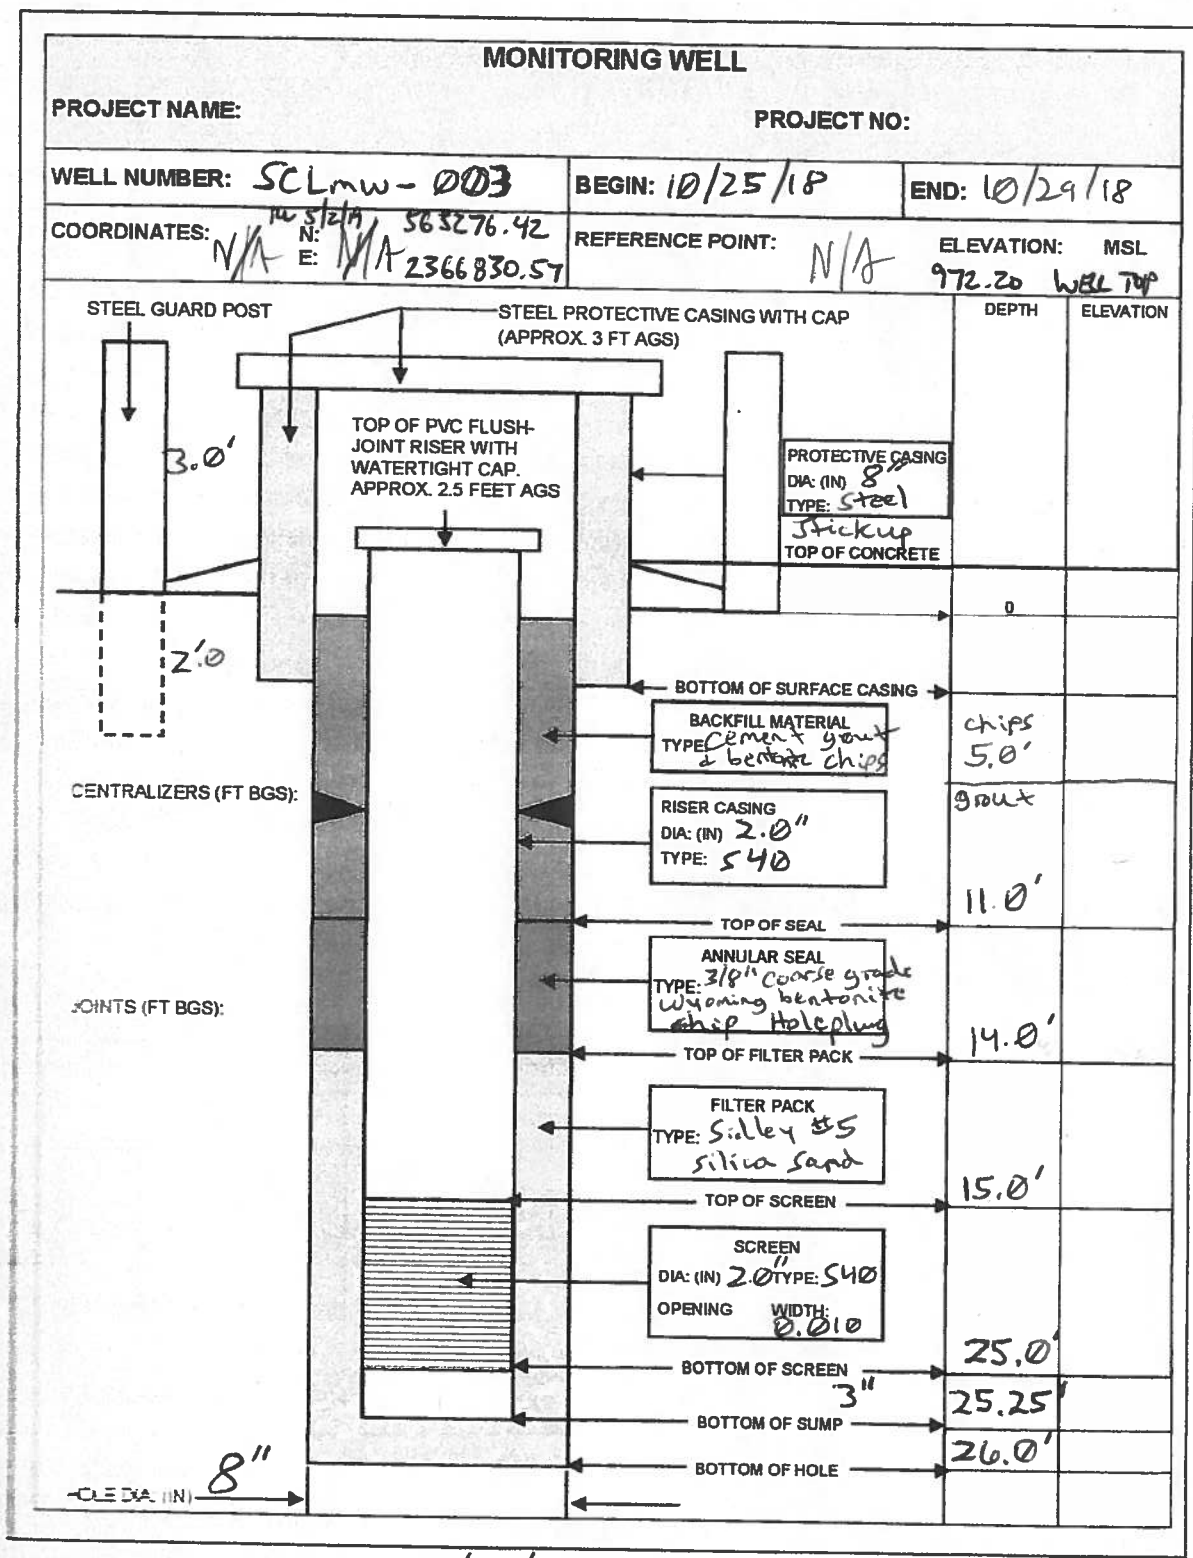 MONITORING WELL
PROJECT NAME:
PROJECT NO:
WELL NUMBER: SCLmw-003
BEGIN: 10/25/18
END: 10/29/18
COORDINATES: N/A
5/2/19
N: N/A 563276.42
E: 2366830.57
REFERENCE POINT: N/A
ELEVATION: MSL
972.20 WELL TOP
STEEL GUARD POST
STEEL PROTECTIVE CASING WITH CAP
(APPROX. 3 FT AGS)
DEPTH
ELEVATION
3.0'
TOP OF PVC FLUSH-
JOINT RISER WITH
WATERTIGHT CAP.
APPROX. 2.5 FEET AGS
PROTECTIVE CASING
DIA: (IN) 8"
TYPE: Steel
Stickup
TOP OF CONCRETE
0
2'.0
BOTTOM OF SURFACE CASING
BACKFILL MATERIAL
TYPE: Cement grout
& bentonite chips
chips
5.0'
CENTRALIZERS (FT BGS):
grout
RISER CASING
DIA: (IN) 2.0"
TYPE: S40
11.0'
TOP OF SEAL
ANNULAR SEAL
TYPE: 3/8" coarse grade
Wyoming bentonite
chip Holeplug
JOINTS (FT BGS):
14.0'
TOP OF FILTER PACK
FILTER PACK
TYPE: Sidley #5
silica sand
15.0'
TOP OF SCREEN
SCREEN
DIA: (IN) 2.0" TYPE: S40
OPENING WIDTH:
0.010
25.0'
BOTTOM OF SCREEN
3"
25.25'
BOTTOM OF SUMP
26.0'
BOTTOM OF HOLE
HOLE DIA: (IN) 8"